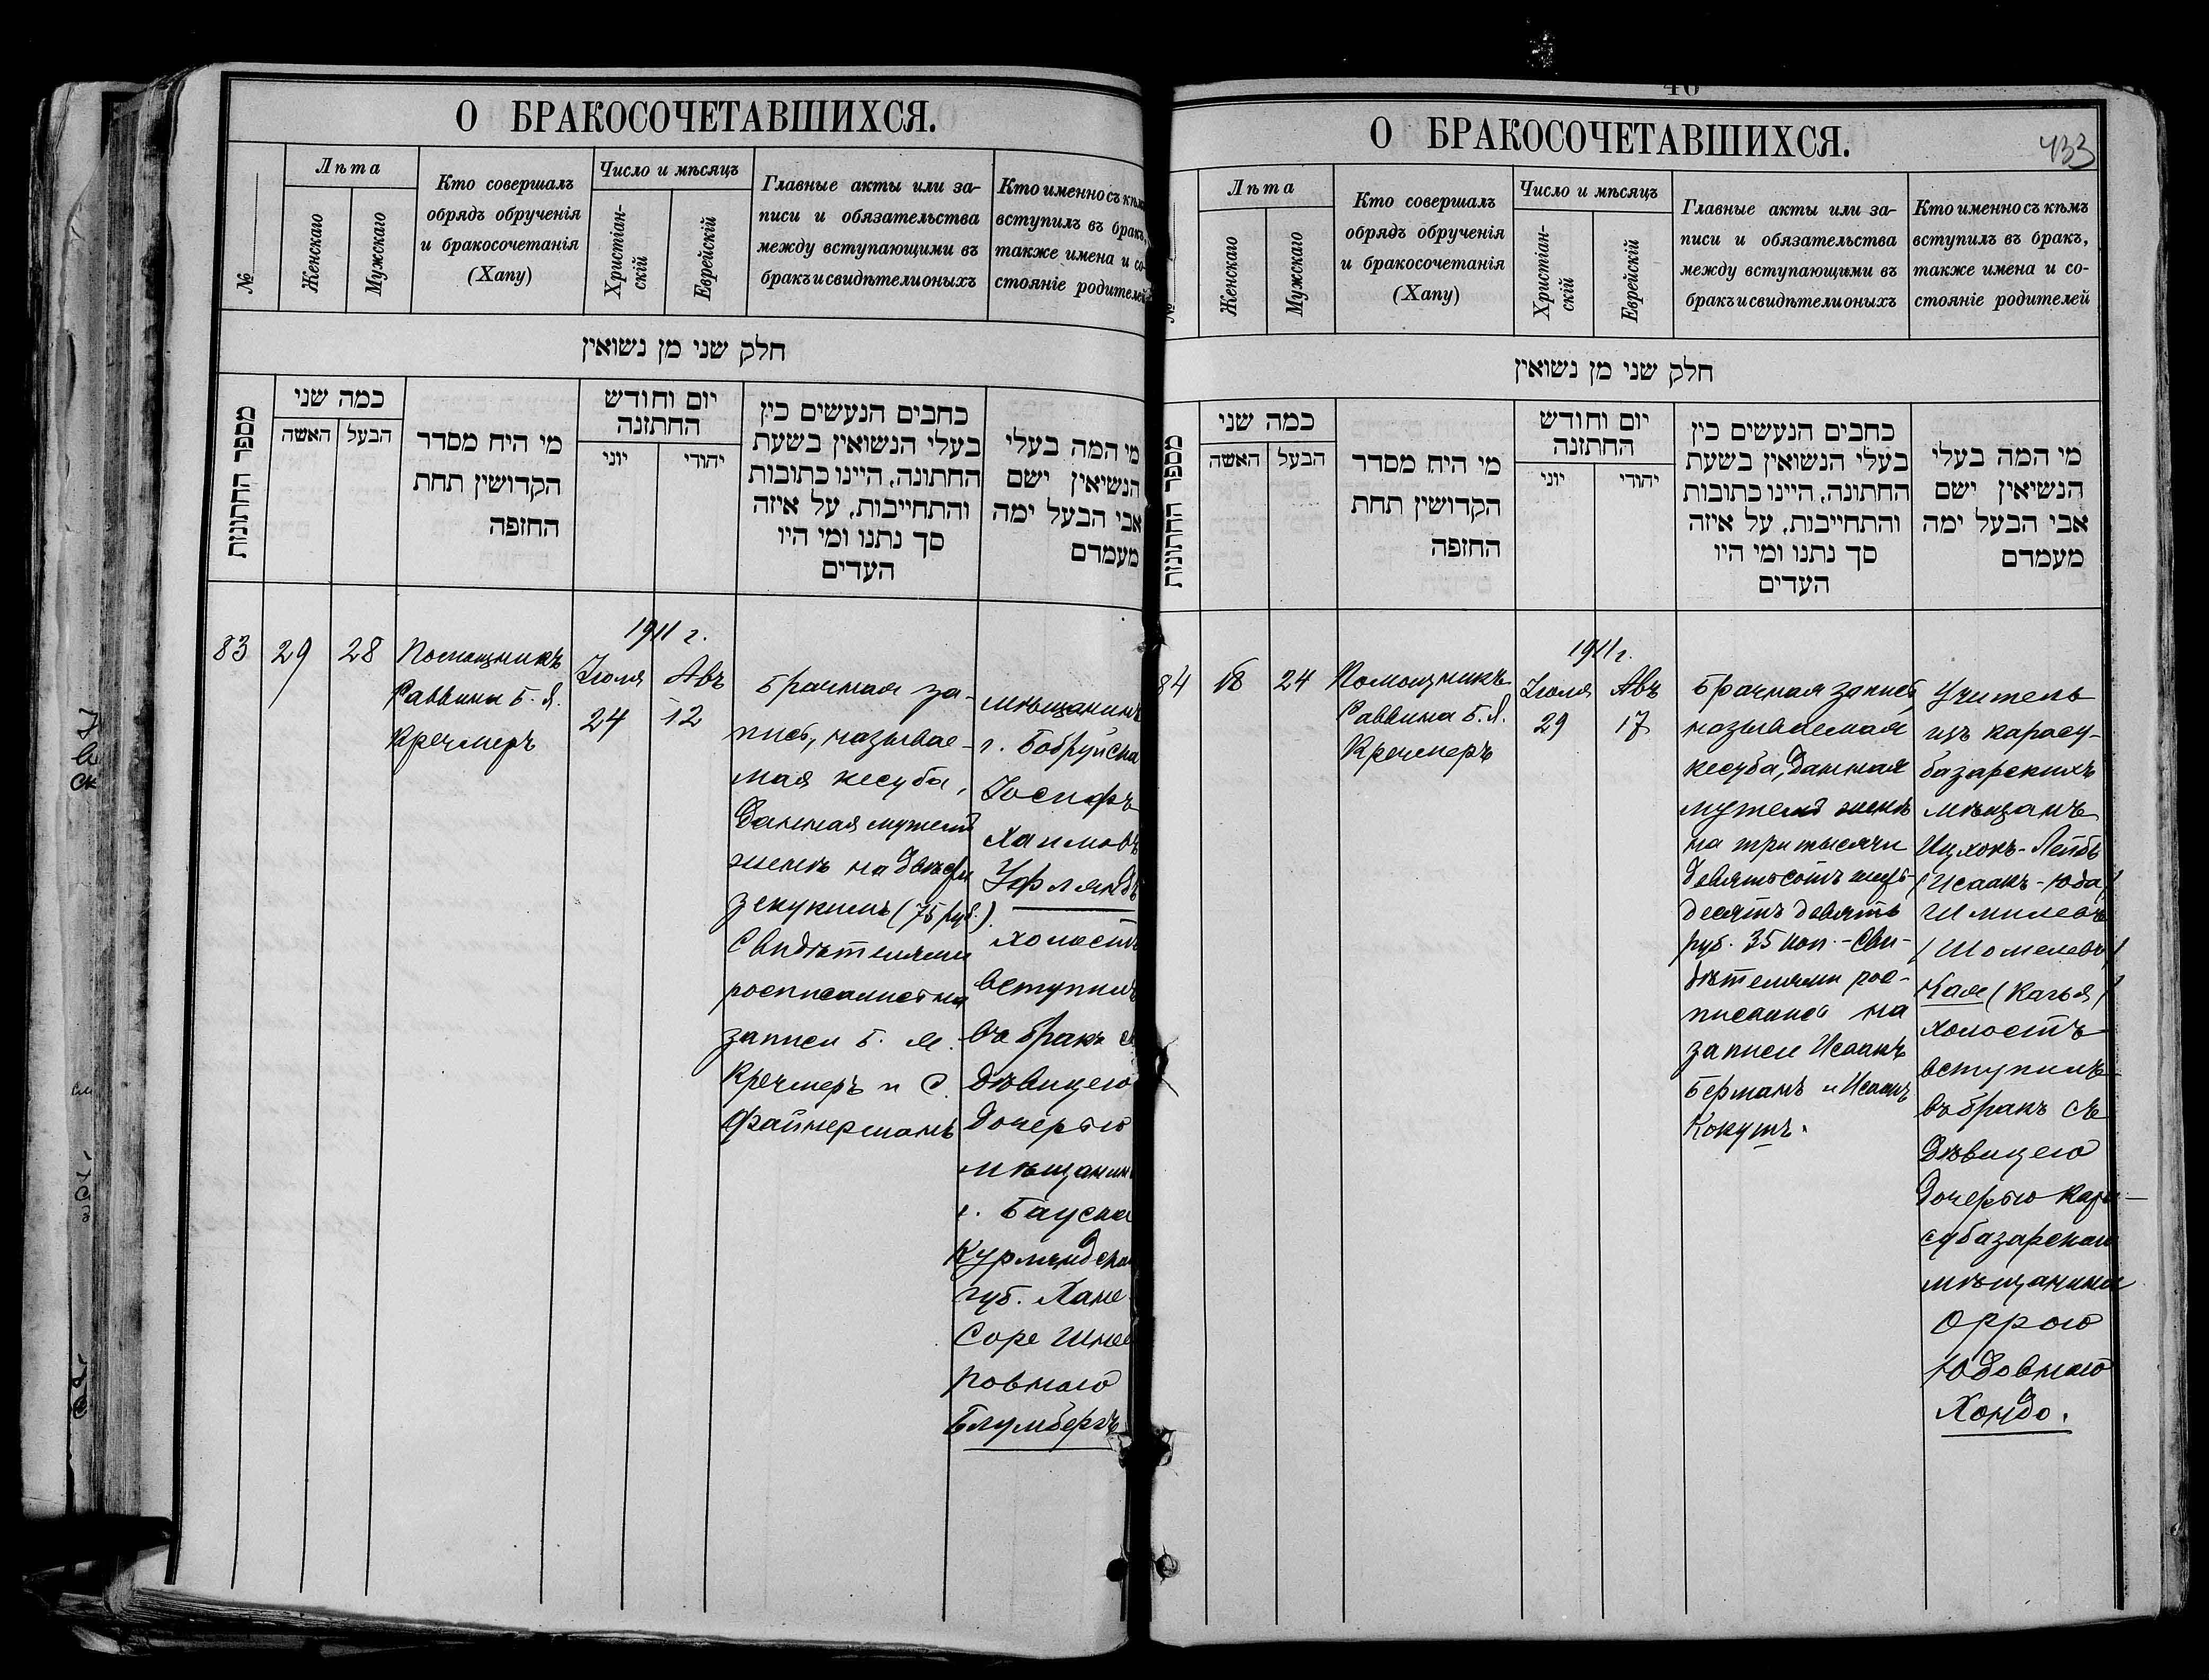 О БРАКОСОЧЕТАВШИХСЯ.
№
Лѣта
Женскаго
Мужскаго
Кто совершалъ
обрядъ обрученія
и бракосочетанія
(Хапу)
Число и мѣсяцъ
Христіан-
скій
Еврейскій
Главные акты или за-
писи и обязательства
между вступающими въ
бракъ и свидѣтели оныхъ
Кто именно съ кѣмъ
вступилъ въ бракъ,
также имена и со-
стояніе родителей
חלק שני מן נשואין
מספר החתונות
כמה שני
האשה
הבעל
מי היח מסדר
הקדושין תחת
החופה
יום וחודש
החתונה
יוני
יהודי
כתבים הנעשים בין
בעלי הנשואין בשעת
החתונה, היינו כתובות
והתחייבות, על איזה
סך נתנו ומי היו
העדים
מי המה בעלי
הנשיאין ישם
אבי הבעל ימה
מעמדם
83
29
28
Помощникъ
Раввина Б. Я.
Кречмеръ
1911 г.
Іюля
24
Авъ
12
Брачная за-
пись, называе-
мая кесуба,
данная мужемъ
женѣ на двѣсти
зекукимъ (75 руб.).
Свидѣтелями
росписались на
записи Б. М.
Кречмеръ и С.
Файнерманъ
мѣщанинъ
г. Бобруйска
Іосифъ
Хаимовъ
Уфляндъ
холостъ
вступилъ
въ бракъ съ
дѣвицею
дочерью
мѣщанина
г. Бауска
Курляндской
губ. Хане-
Соре Шнее-
ровною
Блумбергъ
О БРАКОСОЧЕТАВШИХСЯ.
433
№
Лѣта
Женскаго
Мужскаго
Кто совершалъ
обрядъ обрученія
и бракосочетанія
(Хапу)
Число и мѣсяцъ
Христіан-
скій
Еврейскій
Главные акты или за-
писи и обязательства
между вступающими въ
бракъ и свидѣтели оныхъ
Кто именно съ кѣмъ
вступилъ въ бракъ,
также имена и со-
стояніе родителей
חלק שני מן נשואין
מספר החתונות
כמה שני
האשה
הבעל
מי היח מסדר
הקדושין תחת
החופה
יום וחודש
החתונה
יוני
יהודי
כתבים הנעשים בין
בעלי הנשואין בשעת
החתונה, היינו כתובות
והתחייבות, על איזה
סך נתנו ומי היו
העדים
מי המה בעלי
הנשיאין ישם
אבי הבעל ימה
מעמדם
84
18
24
Помощникъ
Раввина Б. Я.
Кречмеръ
1911 г.
Іюля
29
Авъ
17
Брачная запись
называемая
кесуба, данная
мужемъ женѣ
на три тысячи
девятьсотъ
десятъ девять
руб. 35 коп. - Сви-
дѣтелями рос-
писались на
записи Исаакъ
Берманъ и Исаакъ
Кокушъ.
Учитель
изъ карасу-
базарскихъ
мѣщанъ
Ицхокъ-Лейбъ
(Исаакъ-Юда)
Шмилевъ
(Шомелевъ)
Кая (Качья)
холостъ
вступилъ
въ бракъ съ
дѣвицею
дочерью кара-
субазарскаго
мѣщанина
Оррою
Юдовною
Хондо.